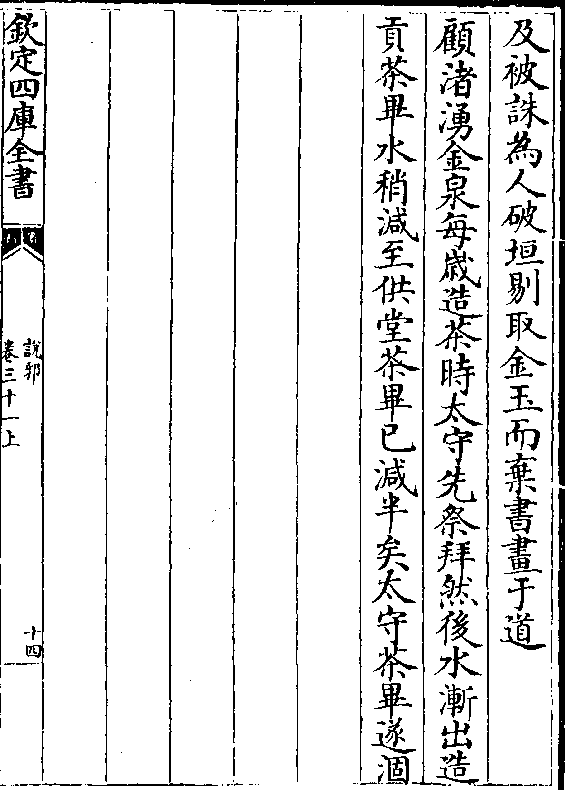 及被誅為人破垣剔取金玉而棄書畫于道
顧渚湧金泉每歲造茶時太守先祭拜然後水漸出造
貢茶畢水稍減至供堂茶畢已減半矣太守茶畢遂涸
欽定四庫全書
說郛
卷三十一上
十四